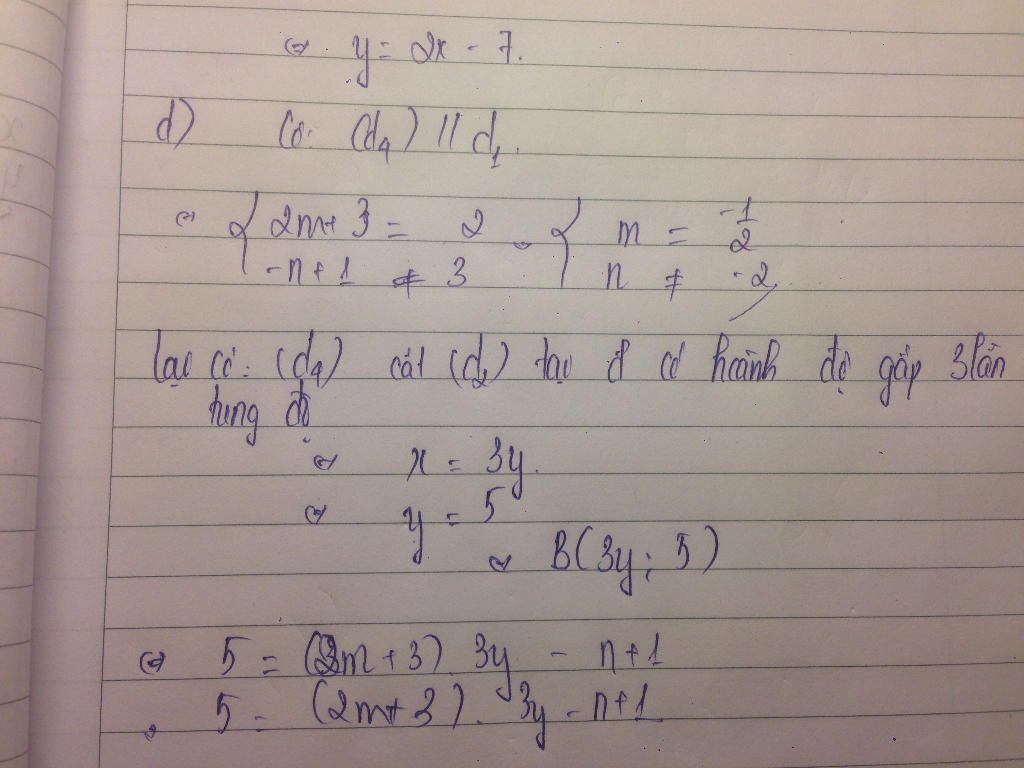 ⇔ y = 2x - 7.
d) Có: (d4) // d1.
⇔ { 2m+3 = 2 ⇔ { m = -1/2
-n+1 ≠ 3 n ≠ -2
Lại có: (d4) cắt (d2) tại đ có hoành độ gấp 3 lần
tung độ
⇔ x = 3y.
⇔ y = 5
⇔ B(3y; 5)
⇔ 5 = (2m+3) 3y - n+1
, 5 = (2m+3). 3y - n+1